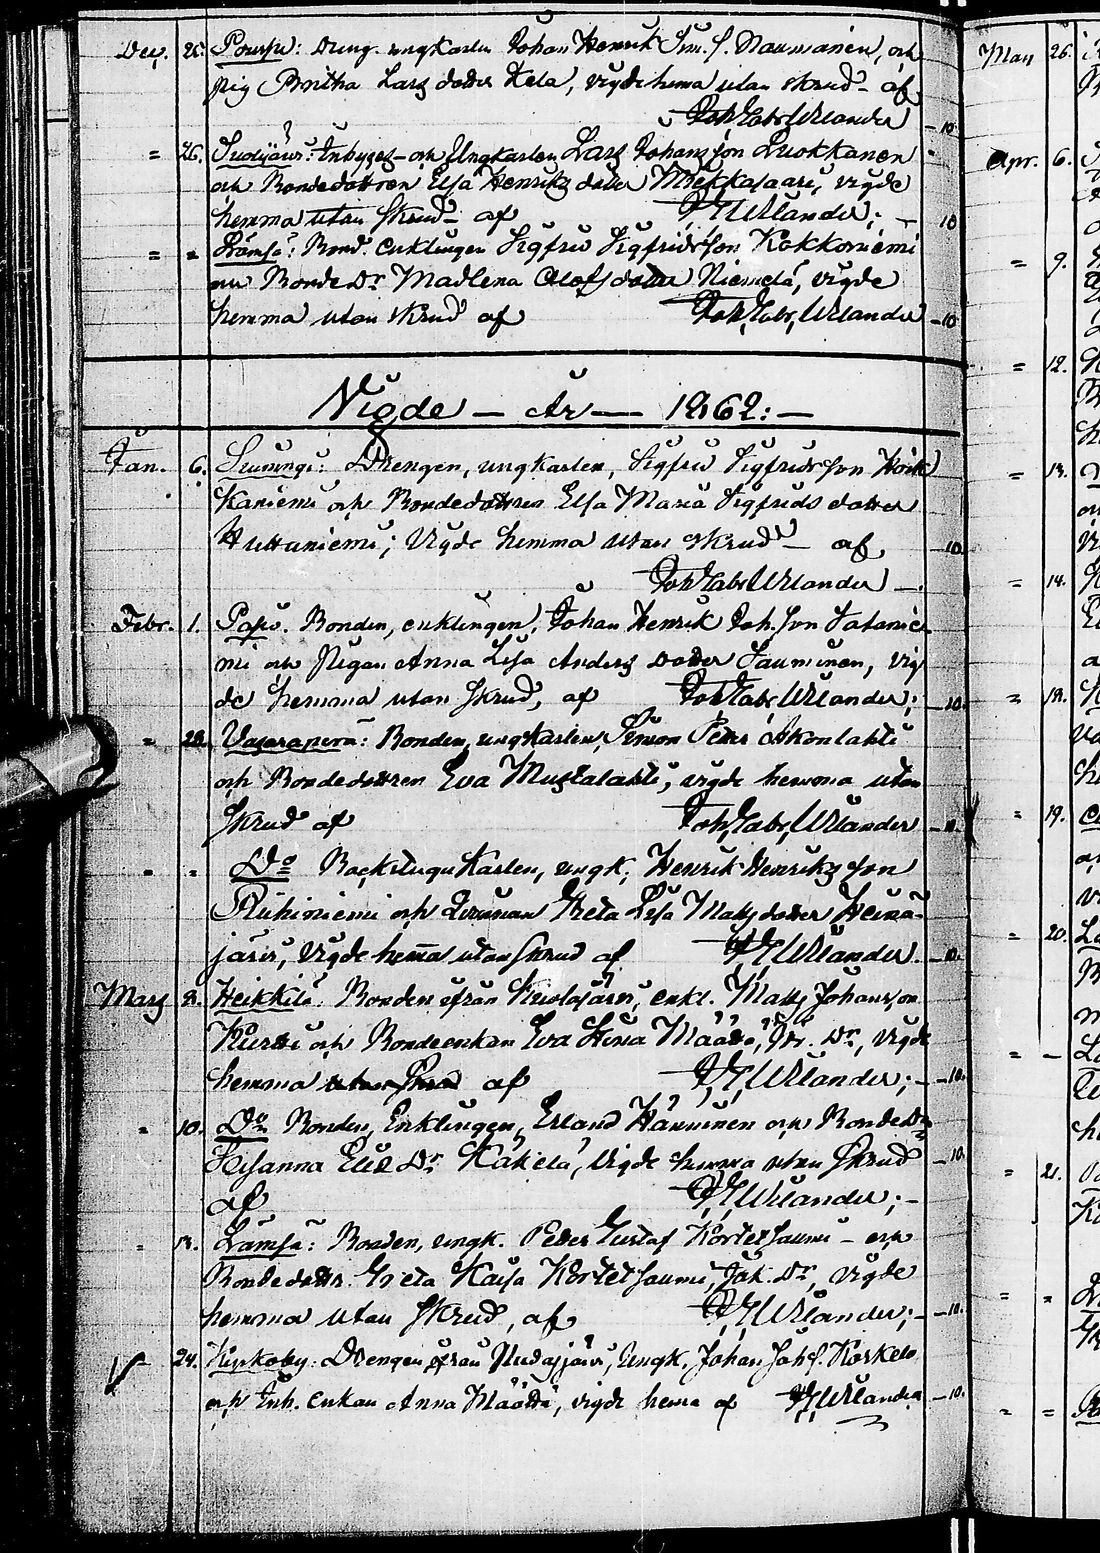 Dec. 25. Poussu: Dreng. ungkarlen Johan Henrik Sim. S. Naumanen, och
pig Britha Lars dotter Kela, vigde hema utan skrud – af
Joh. Gabr. Wilander – 10
= 26. Suvijärvi: Inhyses- och Ungkarlen Lars Johansson Luokkanen
och Bondedottren Elsa Henriks dotter Miekkasaari, vigde
hemma utan Skrud – af J. G. Wilander; – 10
= = Lämsä: Bond. enklingen Sigfrid Sigfridsson Kokkoniemi
och Bonde Dr Madlena Olofsdotter Niemelä, vigde
hemma utan skrud af Joh. Gabr. Wilander – 10
Vigde – År – 1862: –
Jan. 6. Suiningi: Drengen, ungkarlen, Sigfrid Sigfridsson
kaniemi och Bondedottren Elsa Maria Sigfrids dotter
Huttuniemi; Vigde hemma utan skrud – af – 10
Joh. Gabr. Wilander –
Febr. 1. Posio. Bonden, enklingen, Johan Henrik Joh. Son Jatanie-
mi och Pigan Anna Lisa Anders dotter Jauninen, vig
de hemma utan Skrud, af Joh. Gabr. Wilander; – 10
= 28. Vasaraperä: Bonden, ungkarlen, Simon Petter Akonlahti
och Bondedottren Eva Mustalahti, vigde hemma utan
Skrud af Joh. Gabr. Wilander – 10.
= = Do Backstugukarlen, ungk. Henrik Henriksson
Riihiniemi och Qvinnan Greta Lisa Matsdotter Heinä-
järvi, Vigde hemma utan Skrud af J. G. Wilander. – 10.
Mars 2. Heikkilä. Bonden ifrån Kuolajärvi, enkl. Mats Johansson
Kurtti och Bondeenkan Eva Stina Määttä, Dr, Vigde
hemma utan Skrud af J. G. Wilander; – 10.
= 10. Do Bonden, Enklingen, Erland Hänninen och Bonde Dr
Susanna Elis Dr Käkelä, Vigde hemma utan Skrud – 10
af J. G. Wilander; –
= 13. Lämsä: Bonden, ungk. Peder Gustaf Kortetsaumi – och
Bondedottr. Greta Kaisa Kortetsaumi, Joh. Dr, Vigde
hemma utan Skrud, af J. G. Wilander; – 10.
24. Kyrkoby: Drengen ifrån Pudasjärvi, Ungk. Johan Joh. S. Korkelo
och Inh. enkan Anna Määttä, vigde hema af J. G. Wilander – 10.
Mars 26.
Apr. 6.
= 9.
= 12.
= 13.
= 14.
= 18.
= 19.
= 20.
= –
= 21.
= =
= =